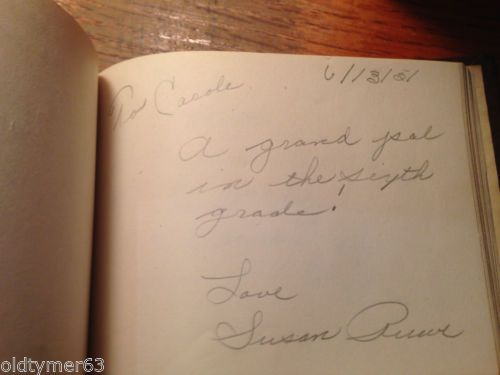 To Carole 6/13/51
A grand pal
in the sixth
grade!
Love
Susan
oldtymer63